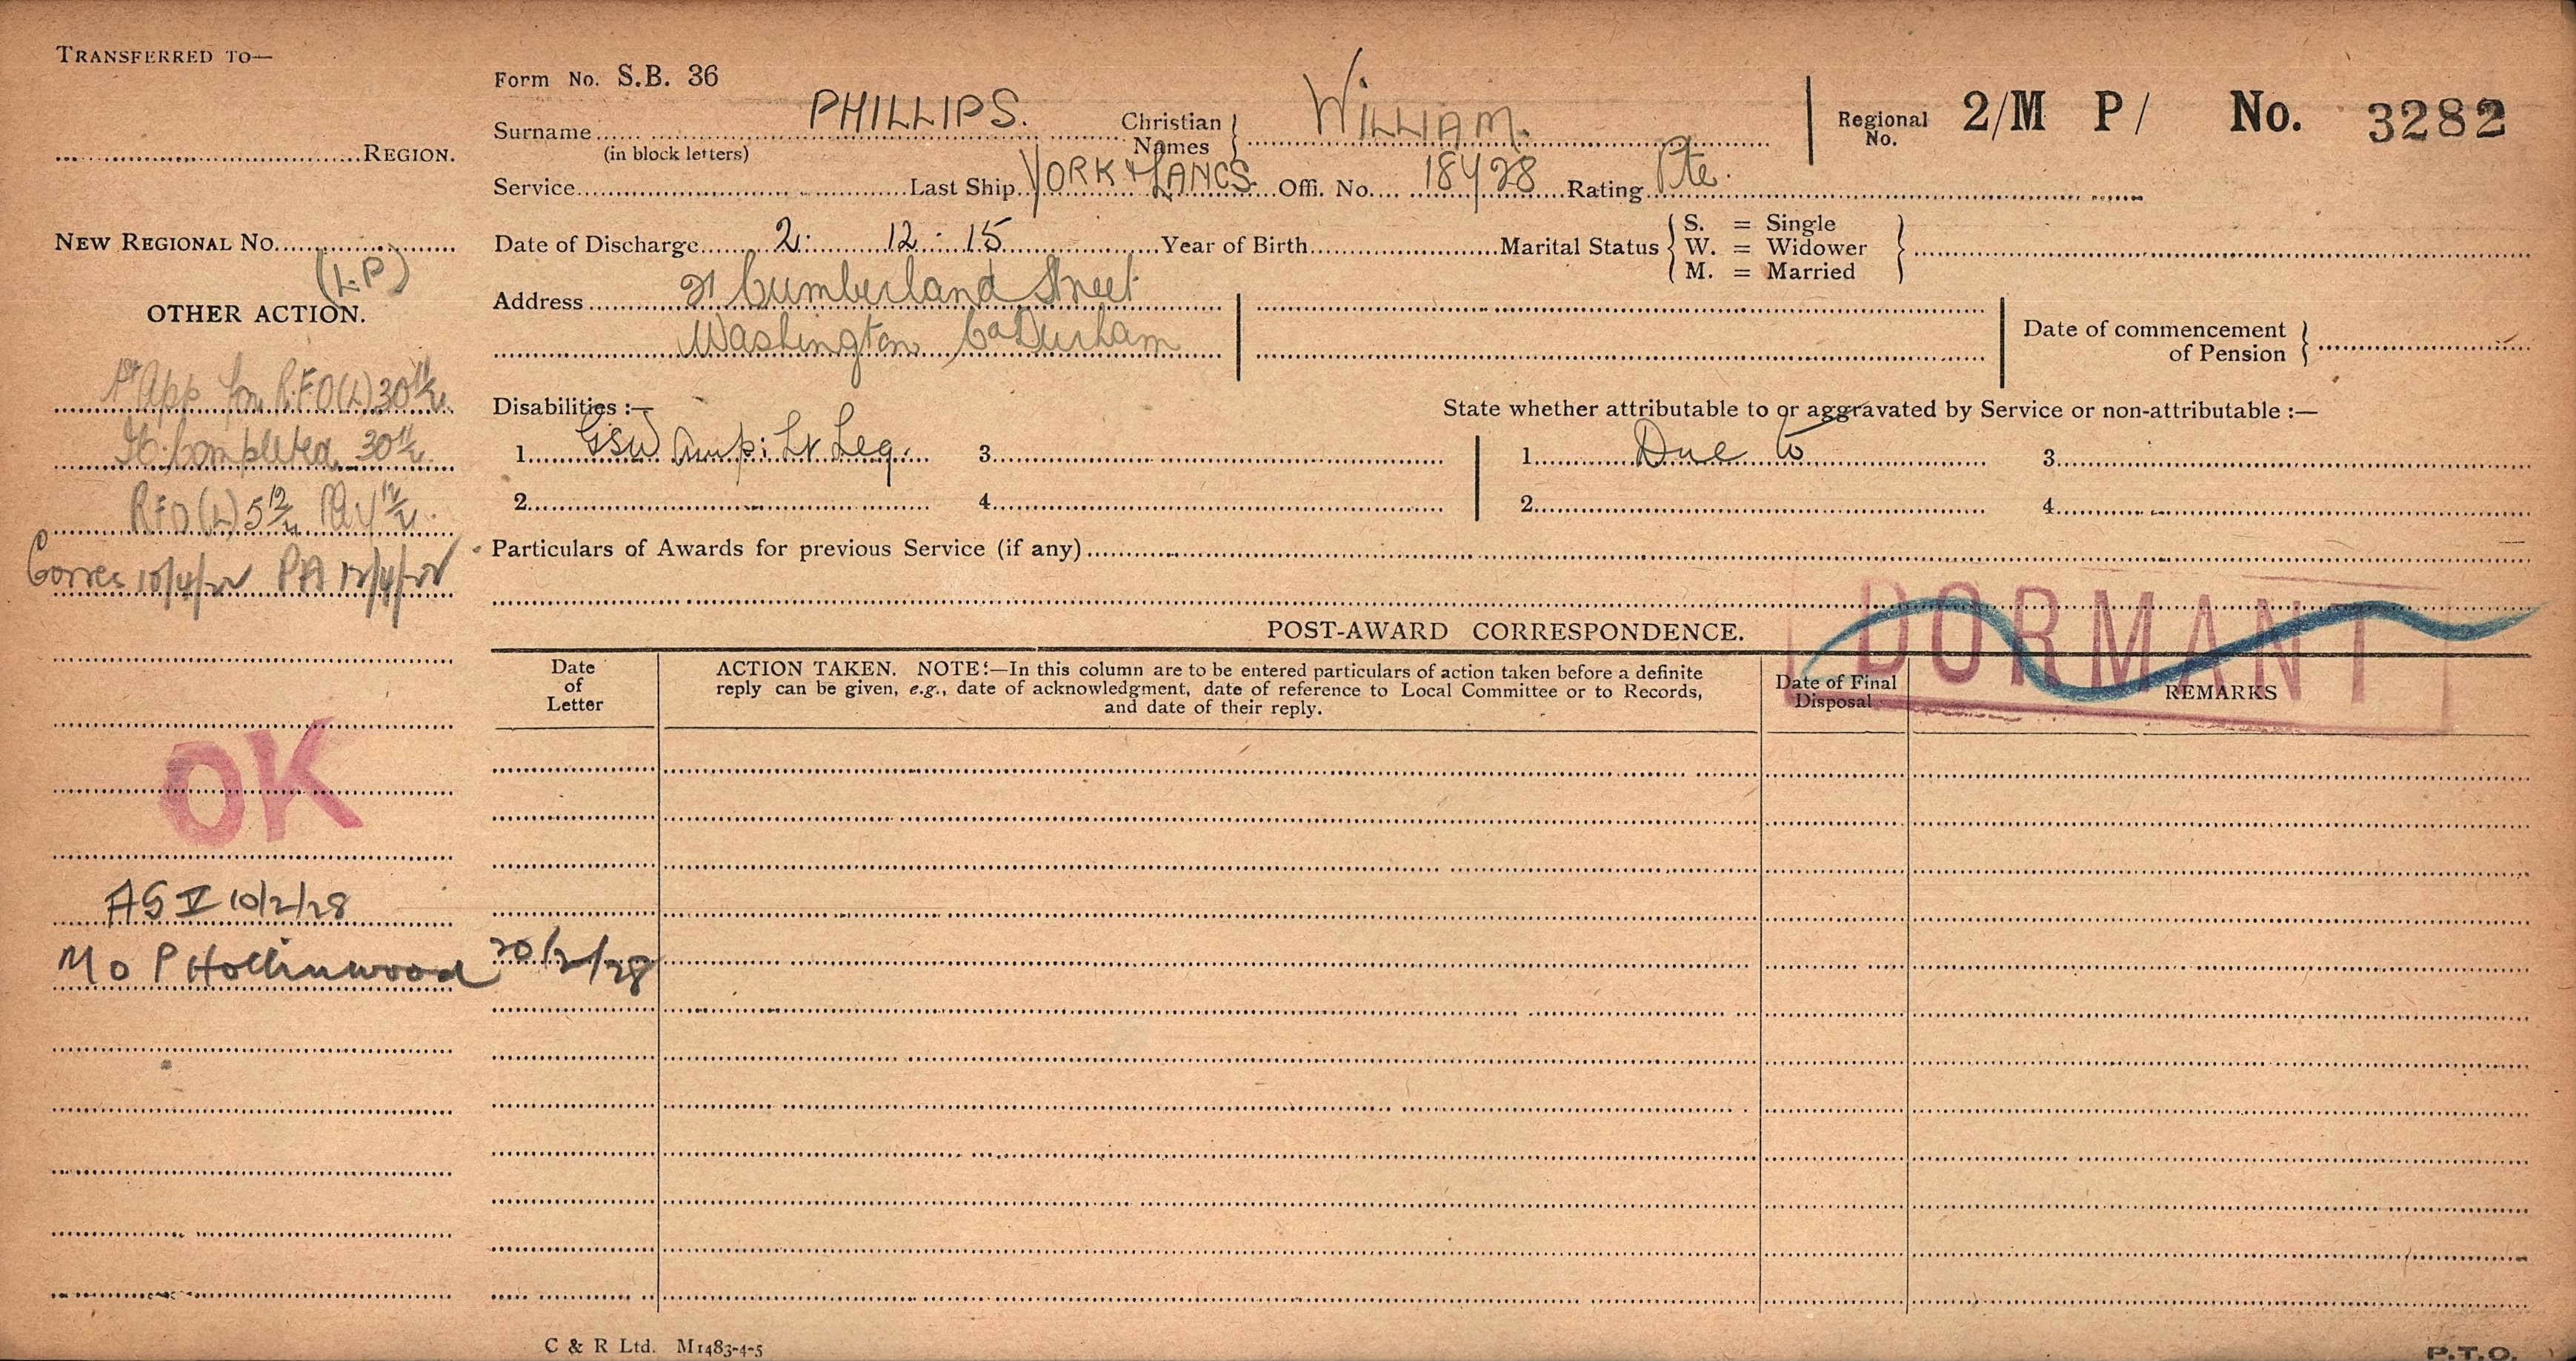 TRANSFERRED TO—
REGION.
NEW REGIONAL No.
(L.P)
OTHER ACTION.
App for R.F.O(L) 30
Completed 30
RFO(L) 5
Corres 10/4/22 PA 12/4/22
OK
AG V 10/2/28
M o P Hollinwood 20/2/28
Form No. S.B. 36
Surname PHILLIPS. Christian Names WILLIAM.
(in block letters)
Regional No. 2/M P/ No. 3282
Service Last Ship YORK & LANCS. Offi. No. 18428 Rating Pte.
Date of Discharge 2: 12: 15 Year of Birth Marital Status
S. = Single
W. = Widower
M. = Married
Address 21 Cumberland Street
Washington Co Durham
Date of commencement of Pension
Disabilities :— State whether attributable to or aggravated by Service or non-attributable :—
1. GSW Amp: Lt Leg. 3. 1. Due to 3.
2. 4. 2. 4.
Particulars of Awards for previous Service (if any)
DORMANT
POST-AWARD CORRESPONDENCE.
Date of Letter
ACTION TAKEN. NOTE:—In this column are to be entered particulars of action taken before a definite
reply can be given, e.g., date of acknowledgment, date of reference to Local Committee or to Records,
and date of their reply.
Date of Final Disposal
REMARKS
C & R Ltd. M1483-4-5
P.T.O.